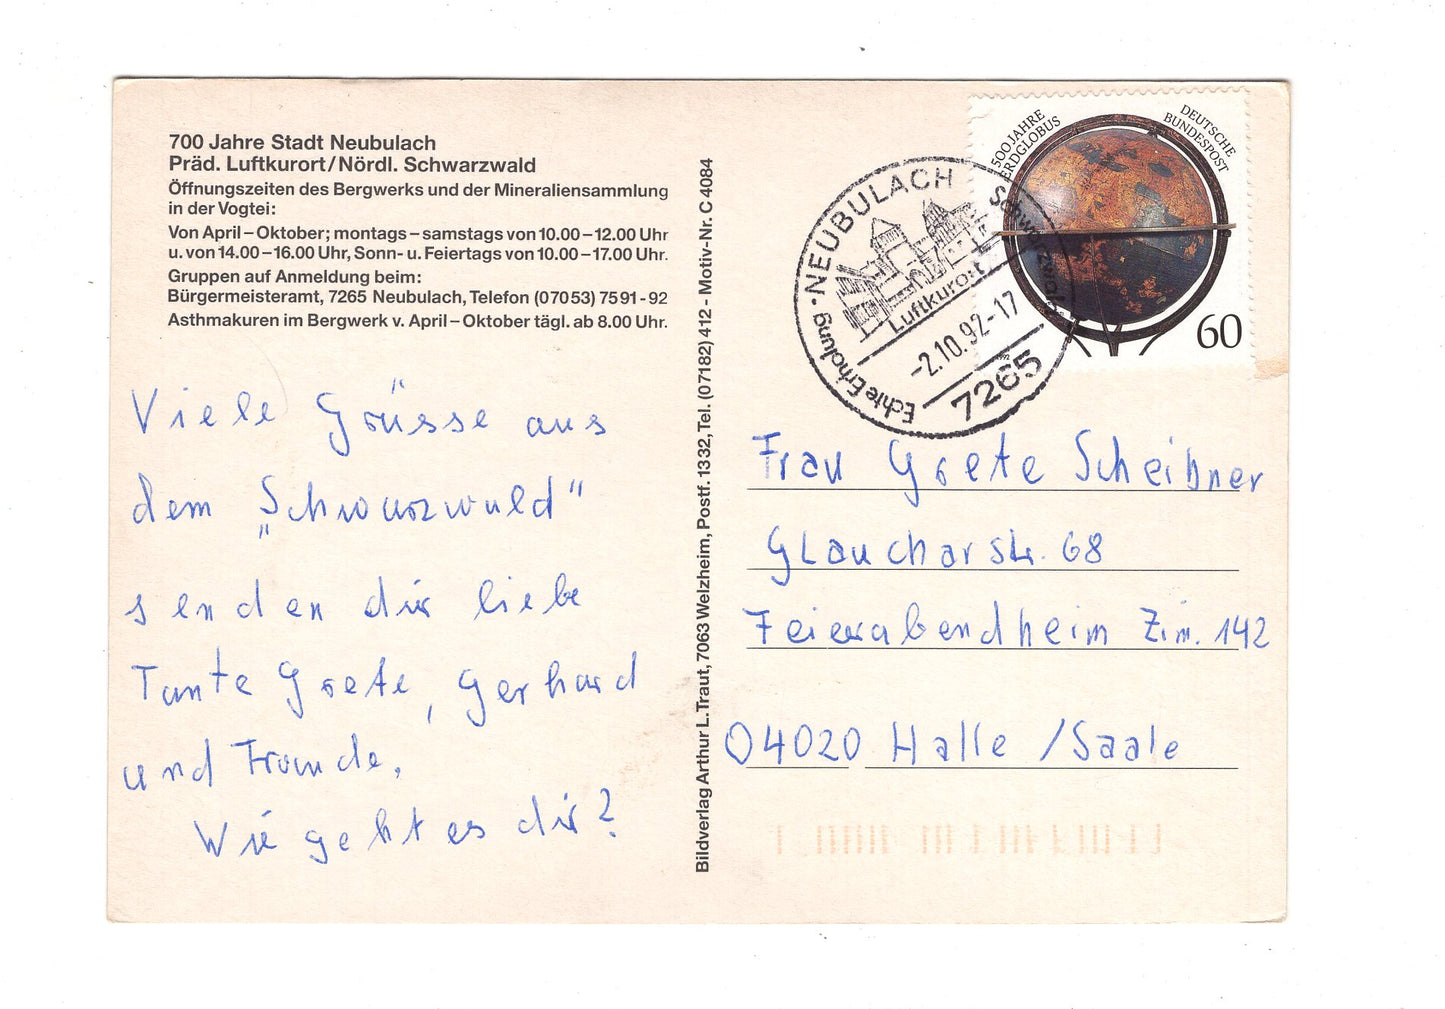 700 Jahre Stadt Neubulach
Präd. Luftkurort/Nördl. Schwarzwald
Öffnungszeiten des Bergwerks und der Mineraliensammlung
in der Vogtei:
Von April – Oktober; montags – samstags von 10.00 – 12.00 Uhr
u. von 14.00 – 16.00 Uhr, Sonn- u. Feiertags von 10.00 – 17.00 Uhr.
Gruppen auf Anmeldung beim:
Bürgermeisteramt, 7265 Neubulach, Telefon (07053) 7591 - 92
Asthmakuren im Bergwerk v. April – Oktober tägl. ab 8.00 Uhr.
Viele Grüsse aus
dem „Schwarzwald"
senden dir liebe
Tante Grete, Gerhard
und Traude.
Wie geht es dir?
Bildverlag Arthur L. Traut, 7063 Welzheim, Postf. 1332, Tel. (07182) 412 - Motiv-Nr. C 4084
500 JAHRE
ERDGLOBUS
DEUTSCHE
BUNDESPOST
60
NEUBULACH
Schwarzwald
Luftkurort
-2.10.92-17
7265
Echte Erholung
Frau Grete Scheibner
Glaucharstr. 68
Feierabendheim Zim. 142
04020 Halle /Saale